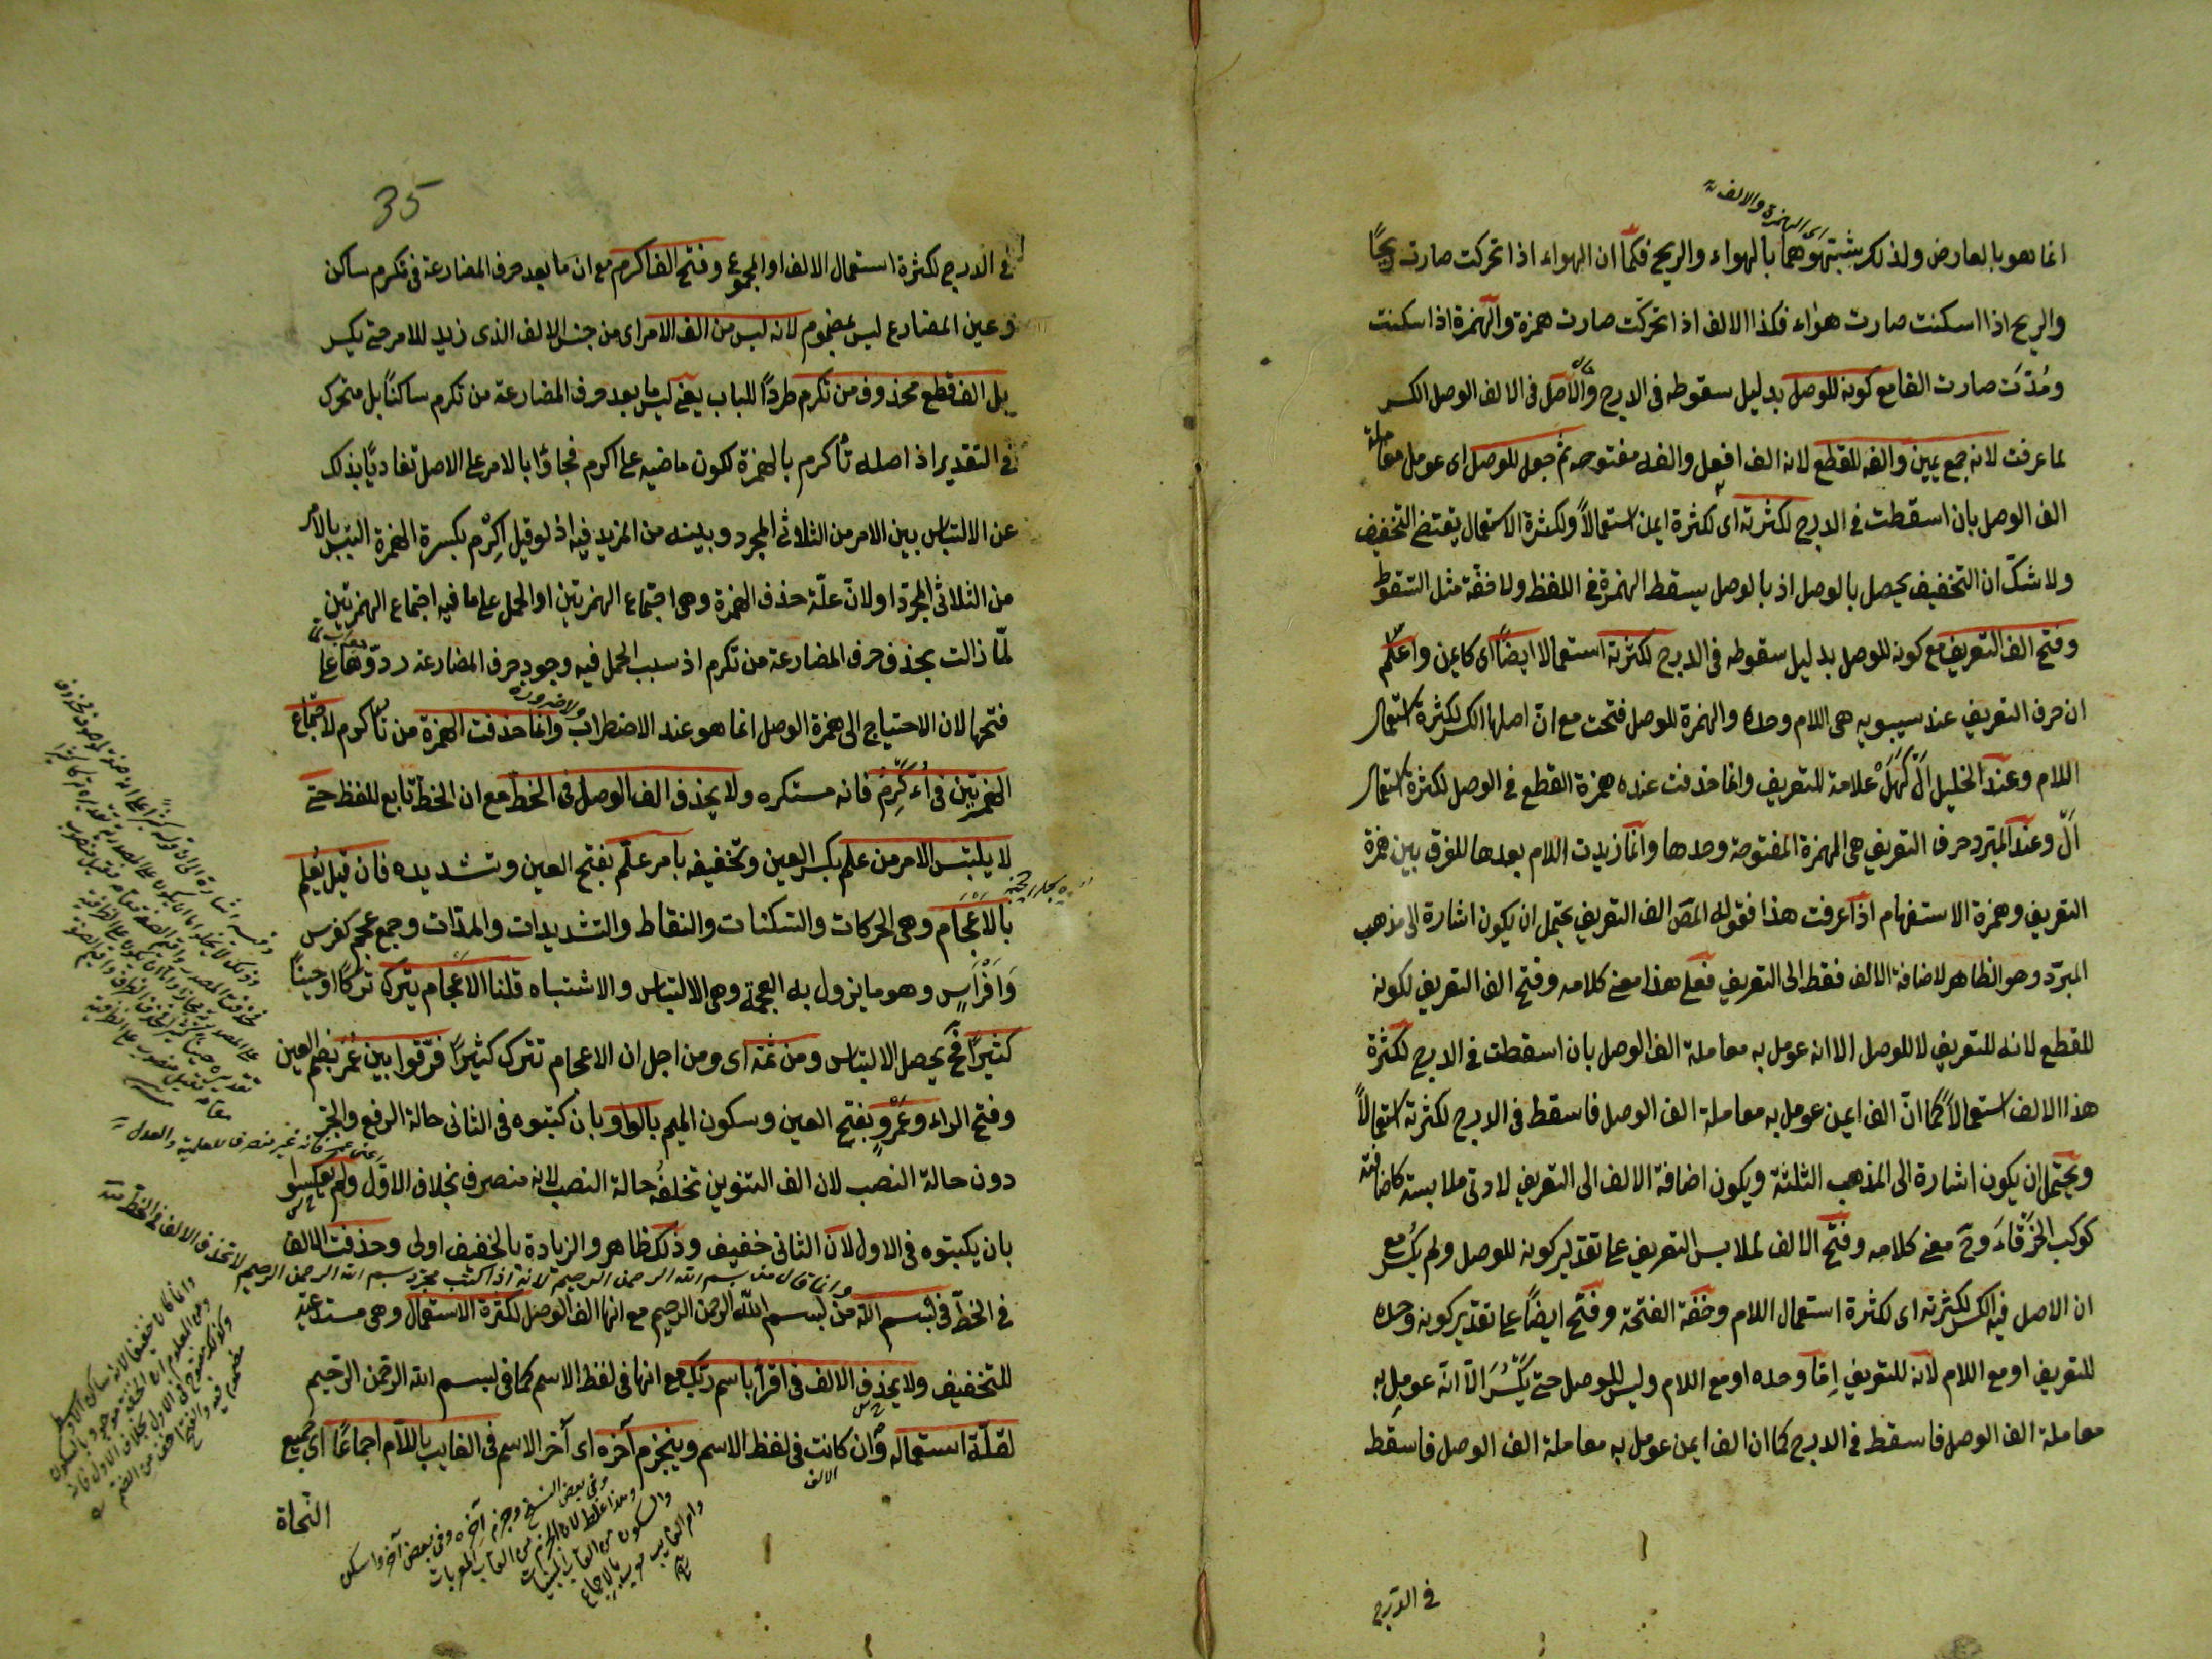 اى الهمزة والالف
انما هو بالعارض ولذلك شبهوهما بالهواء والريح فكما ان الهواء اذا تحركت صارت ريحًا
والريح اذا اسكنت صارت هواء فكذا الالف اذا تحركت صارت همزة والهمزة اذا سكنت
ومُدّت صارت الفا مع كونه للوصل بدليل سقوطه فى الدرج والاصل فى الالف الوصل الكسر
لما عرفت لانه جمع يمين والفه للقطع لانه الف افعل والفه مفتوحه ثم جعل للوصل اى عومل معاملة
الف الوصل بان اسقطت فى الدرج لكثرته اى لكثرة ايمن استعمالاً ولكثرة الاستعمال يقتضى التخفيف
ولا شكّ ان التخفيف يحصل بالوصل اذ بالوصل يسقط الهمزة فى اللفظ ولا خفّة مثل السقوط
وفتح الف التعريف مع كونه للوصل بدليل سقوطه فى الدرج لكثرته استعمالا ايضًا اى كايمن واعلم
ان حرف التعريف عند سيبويه هى اللام وحده والهمزة للوصل فتحت مع انّ اصلها الكسر لكثرة استعمال
اللام وعند الخليل الْ كهَلْ علامة للتعريف وانما حذفت عنده همزة القطع فى الوصل لكثرة استعمال
الْ وعند المبرّد حرف التعريف هى الهمزة المفتوحة وحدها وانما زيدت اللام بعدها للفرق بين همزة
التعريف وهمزة الاستفهام اذا عرفت هذا فقوله المص الف التعريف يحتمل ان يكون اشارة الى مذهب
المبرّد وهو الظاهر لاضافة الالف فقط الى التعريف فعلى هذا معنى كلامه وفتح الف التعريف لكونه
للقطع لانه للتعريف لا للوصل الا انه عومل به معاملة الف الوصل بان اسقطت فى الدرج لكثرة
هذا الالف استعمالاً كما انّ الف ايمن عومل به معاملة الف الوصل فاسقط فى الدرج لكثرته استعمالاً
ويحتمل ان يكون اشارة الى المذهب الثلثة ويكون اضافة الالف الى التعريف لادنى ملابسته كاضافة
كوكب الخرقاء وح معنى كلامه وفتح الالف لملابس التعريف على تقدير كونه للوصل ولم يكسر مع
ان الاصل فيه الكسر لكثرته اى لكثرة استعمال اللام وخفة الفتحة وفتح ايضاً على تقدير كونه وحده
للتعريف او مع اللام لانه للتعريف اِمّا وحده او مع اللام وليس للوصل حتى يكسر الّا انّه عومل به
معاملة الف الوصل فاسقط فى الدرج كما ان الف ايمن عومل به معاملة الف الوصل فاسقط
فى الدرج
35
فى الدرج لكثرة استعمال الالف او المجموع وفتح الف اكرم مع ان ما بعد حرف المضارعة فى تكرم ساكن
وعين المضارع ليس بمضموم لانه ليس من الف الامر اى من جنس الالف الذى زيد للامر حتى يكسر
بل الف قطع محذوف من تكرم طرداً للباب يعنى ليس ما بعد حرف المضارعة من تكرم ساكناً بل متحرك
فى التقدير اذ اصله تُأكرم بالهمزة لكون ماضيه على اكرم فجاؤا بالامر على الاصل تفاديًا بذلك
عن الالتباس بين الامر من الثلاثى المجرد وبينه من المزيد فيه اذ لو قيل اِكرم بكسرة الهمزة التبس بالامر
من الثلاثى المجرّد او لانّ علّة حذف الهمزة وهى اجتماع الهمزتين او الحمل على ما فيه اجتماع الهمزتين
لمّا زالت بحذف حرف المضارعة من تكرم اذ سبب الحمل فيه وجود حرف المضارعة ردّوها على
فتحها لان الاحتياج الى همزة الوصل انما هو عند الاضطراب وانما حذفت الهمزة من تأكرم لاجتماع
ولا ضرورة
الهمزتين فى أُءكرِم فانه مستكره ولا يحذف الف الوصل فى الخط مع ان الخط تابع للفظ حتى
لا يلتبس الامر من علم بكسر العين وتخفيفه بامر علّم بفتح العين وتشديده فان قيل يُعلم
بالاَعْجَام وهى الحركات والسكنات والنقاط والتشديدات والمدّات وجمع عجم كفرس
وَاَفْرَاسٍ وهو ما يزول به العجمة وهى الالتباس والاشتباه قلنا الاعْجام يترك تركًا او حينًا
كثيرًا فح يحصل الالتباس ومن ثمّه اى ومن اجل ان الاعجام تترك كثيرًا فرّقوا بين عُمَر بضم العين
وفتح الراء وعَمْروٍ بفتح العين وسكون الميم بالواو بان كتبوه فى الثانى حالة الرفع والجرّ
اعنى عمر فانه غير منصرف للعلمية والعدل
دون حالة النصب لان الف التنوين تخلفُه حالة النصب لانه منصرف بخلاف الاوّل ولم يعكسوا
بان يكبتوه فى الاول لانّ الثانى خفيف وذلك ظاهر والزيادة بالخفيف اولى وحذفت الالف
وانما قال من بسم الله الرحمن الرحيم لانه اذا كتب مجرد بسم الله الرحمن الرحيم لا تحذف الالف فى الخط منه
فى الخطّ فى بسم الله من بسم الله الرحمن الرحيم مع انها الف الوصل لكثرة الاستعمال وهى مستدعية
للتخفيف ولا يحذف الالف فى اقرأ باسم ربّك مع انها فى لفظ الاسم كما فى بسم الله الرحمن الرّحيم
لقلّة استعماله وان كانت فى لفظ الاسم وينجزم آخره اى آخر الاسم فى الغايب باللام اجماعًا اى جميع
الالف
النّحاة
وفى بعض النسخ وجزم آخره وفى بعض آخر واسكن
وهذا غلط لان الجزم من القاب المعربات
والسكون من القاب المبنيات
وامر الغايب معرب بالاجماع
وانما كان خفيفا لانه ساكن الاوسط
ومن المعلوم ان الخفة موجود بالسكون